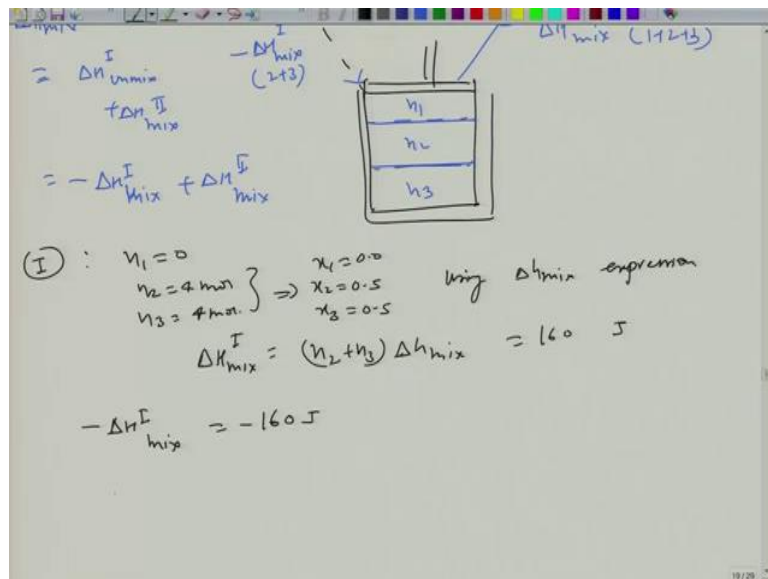 ΔH mix (1+2+3)
= ΔH^I unmix
+ΔH^II mix
-ΔH^I mix
(2+3)
n1
n2
n3
= -ΔH^I mix + ΔH^II mix
I : n1 = 0
n2 = 4 mol
n3 = 4 mol.
} ⇒
x1 = 0.0
x2 = 0.5
x3 = 0.5
using Δhmix expression
ΔH^I mix = (n2+n3) Δhmix = 160 J
-ΔH^I mix = -160 J
19/29